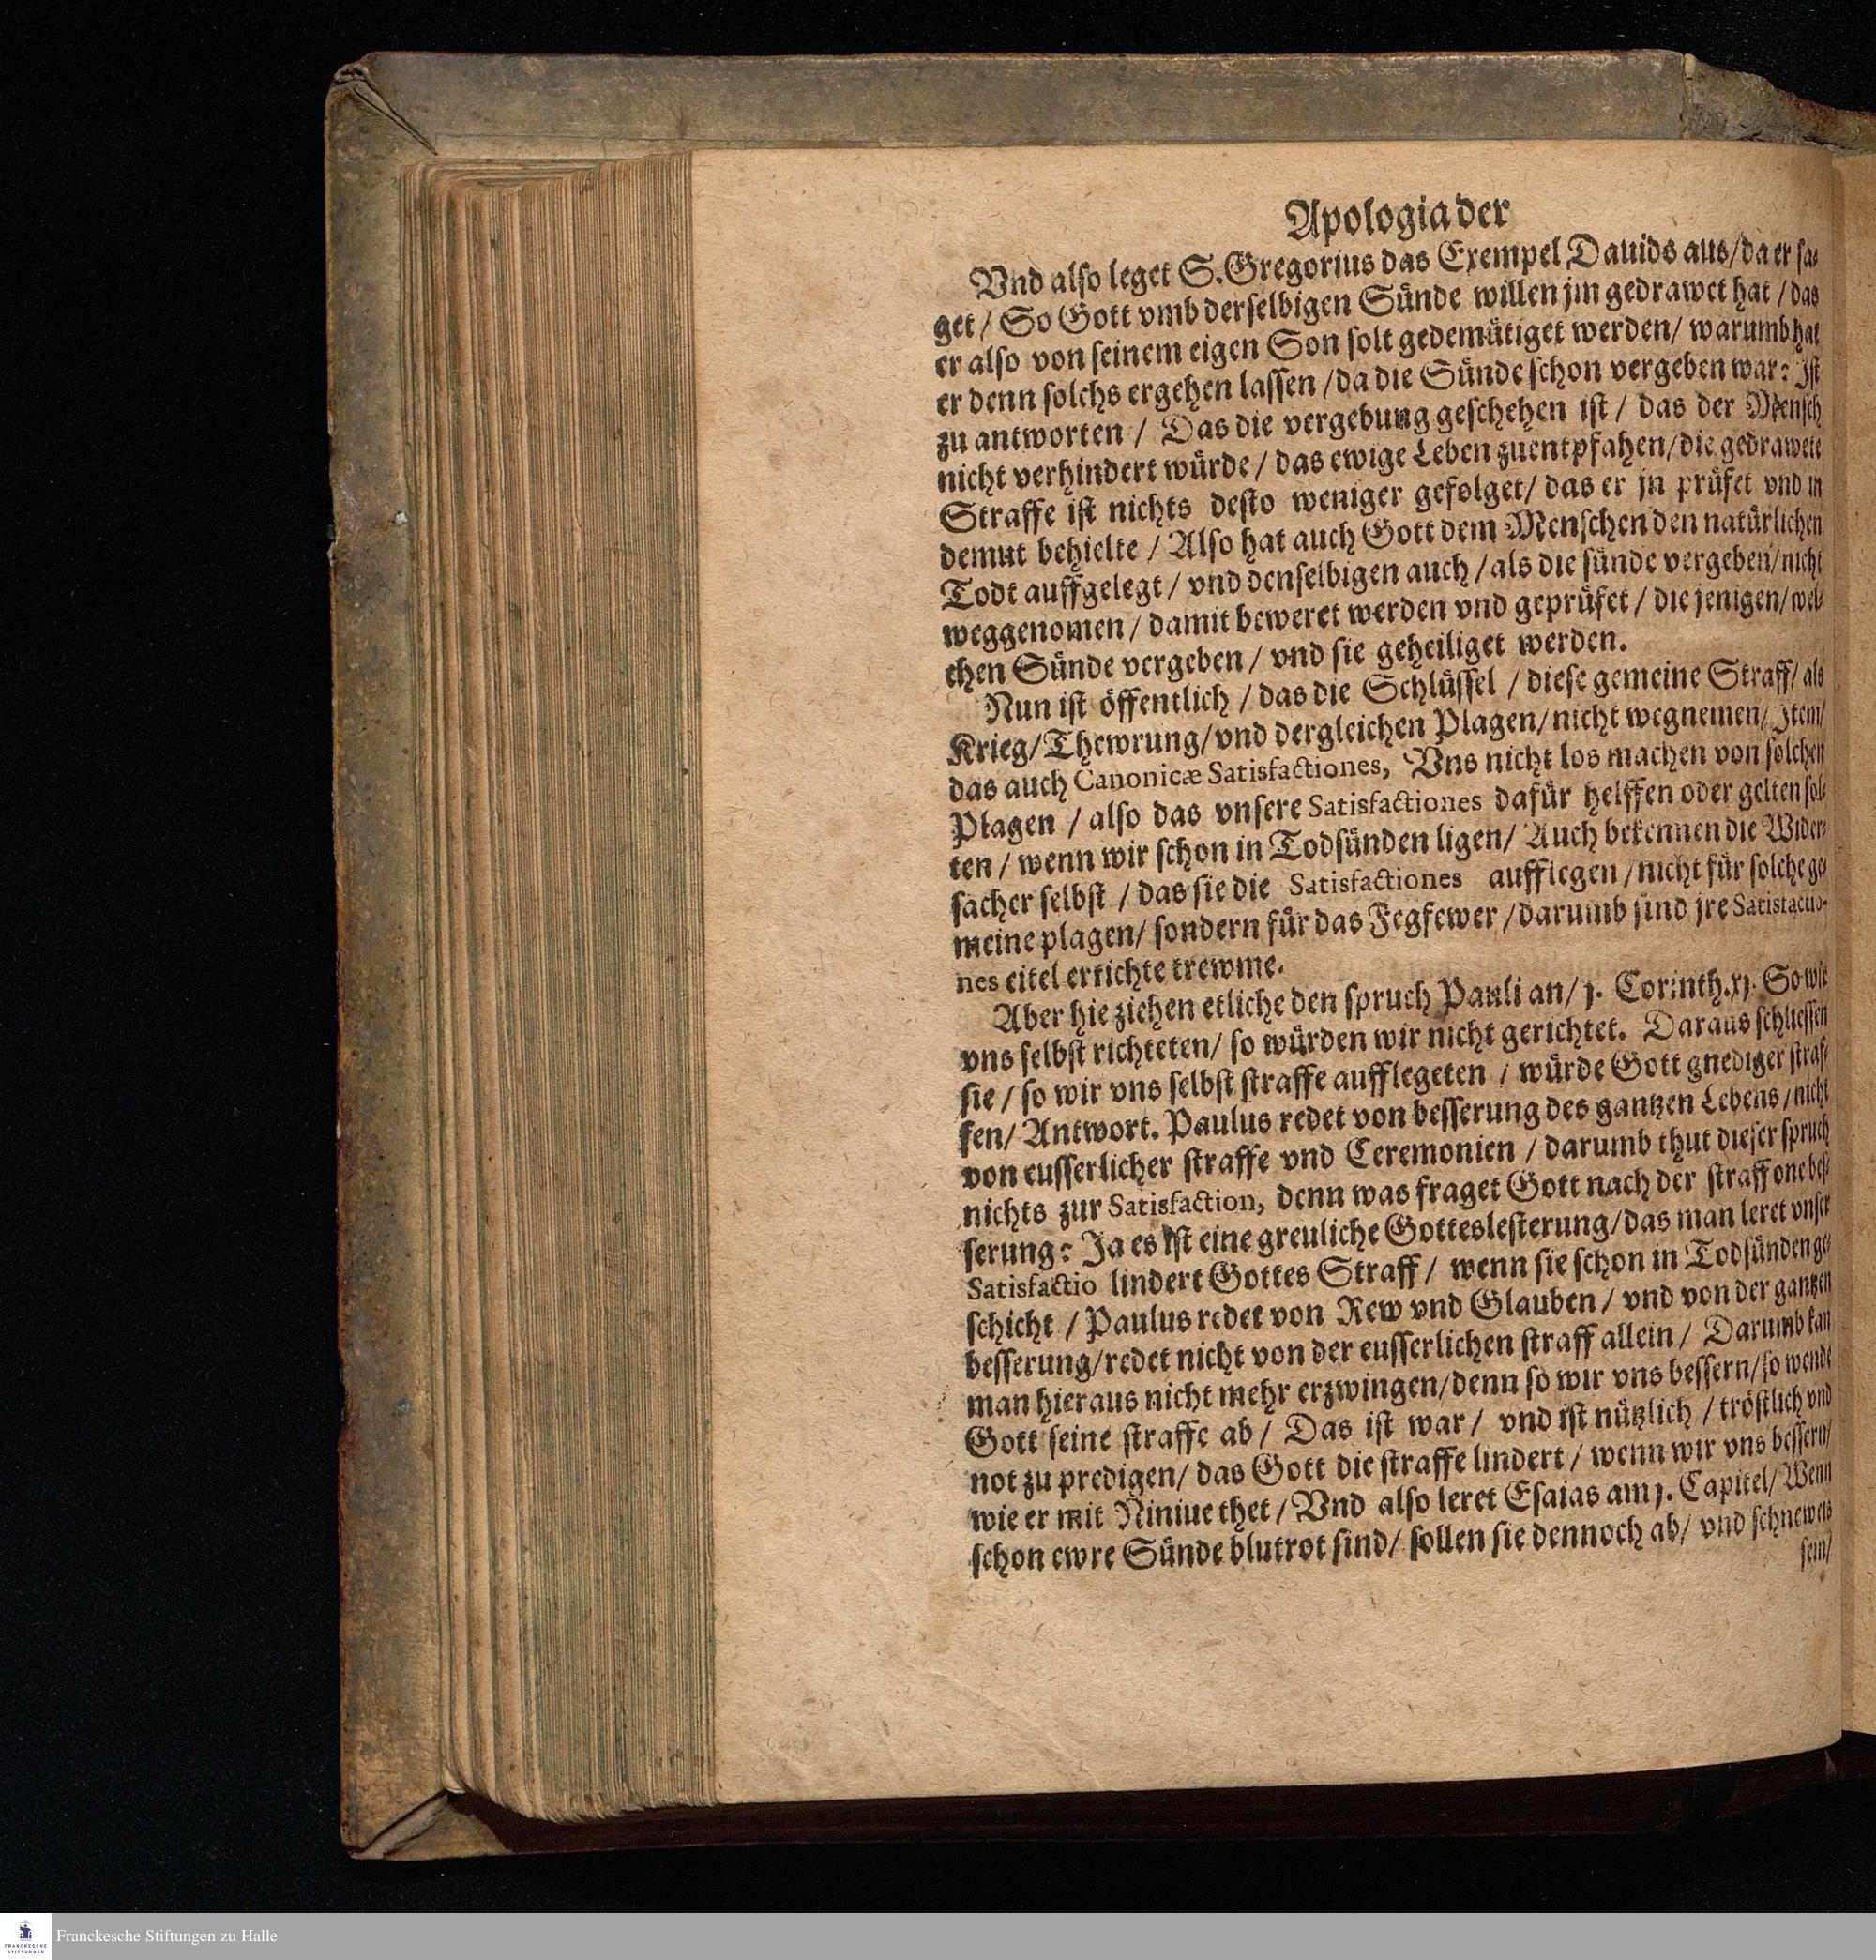 Apologia der
Vnd also leget S. Gregorius das Exempel Dauids aus/ da er sa-
get / So Gott vmb derselbigen Sünde willen jm gedrawet hat / das
er also von seinem eigen Son solt gedemütiget werden/ warumb hat
er denn solchs ergehen lassen / da die Sünde schon vergeben war: Jst
zu antworten / Das die vergebung geschehen ist / das der Mensch
nicht verhindert würde / das ewige Leben zuentpfahen/ die gedrawete
Straffe ist nichts desto weniger gefolget/ das er jn prüfet vnd in
demut behielte / Also hat auch Gott dem Menschen den natürlichen
Todt auffgelegt / vnd denselbigen auch / als die sünde vergeben/ nicht
weggenomen / damit beweret werden vnd geprüfet / die jenigen/ wel-
chen Sünde vergeben / vnd sie geheiliget werden.
Nun ist öffentlich / das die Schlüssel / diese gemeine Straff/ als
Krieg/ Thewrung/ vnd dergleichen Plagen/ nicht wegnemen/ Jtem/
das auch Canonicæ Satisfactiones, Vns nicht los machen von solchen
Plagen / also das vnsere Satisfactiones dafür helffen oder gelten sol-
ten / wenn wir schon in Todsünden ligen/ Auch bekennen die Wider-
sacher selbst / das sie die Satisfactiones aufflegen / nicht für solche ge-
meine plagen/ sondern für das Fegfewer / darumb sind jre Satisfactio-
nes eitel ertichte trewme.
Aber hie ziehen etliche den spruch Pauli an/ j. Corinth. xj. So wir
vns selbst richteten/ so würden wir nicht gerichtet. Daraus schliessen
sie / so wir vns selbst straffe aufflegeten / würde Gott gnediger straf-
fen/ Antwort. Paulus redet von besserung des gantzen Lebens / nicht
von eusserlicher straffe vnd Ceremonien / darumb thut dieser spruch
nichts zur Satisfaction, denn was fraget Gott nach der straff one bes-
serung: Ja es ist eine greuliche Gotteslesterung/ das man leret vnser
Satisfactio lindert Gottes Straff / wenn sie schon in Todsünden ge-
schicht / Paulus redet von Rew vnd Glauben / vnd von der gantzen
besserung/ redet nicht von der eusserlichen straff allein / Darumb kan
man hieraus nicht mehr erzwingen/ denn so wir vns bessern/ so wende
Gott seine straffe ab / Das ist war / vnd ist nützlich / tröstlich vnd
not zu predigen/ das Gott die straffe lindert / wenn wir vns bessern/
wie er mit Niniue thet / Vnd also leret Esaias am j. Capitel/ Wenn
schon ewre Sünde blutrot sind/ sollen sie dennoch ab/ vnd schneweis
sein/
Franckesche Stiftungen zu Halle
FRANCKESCHE
STIFTUNGEN